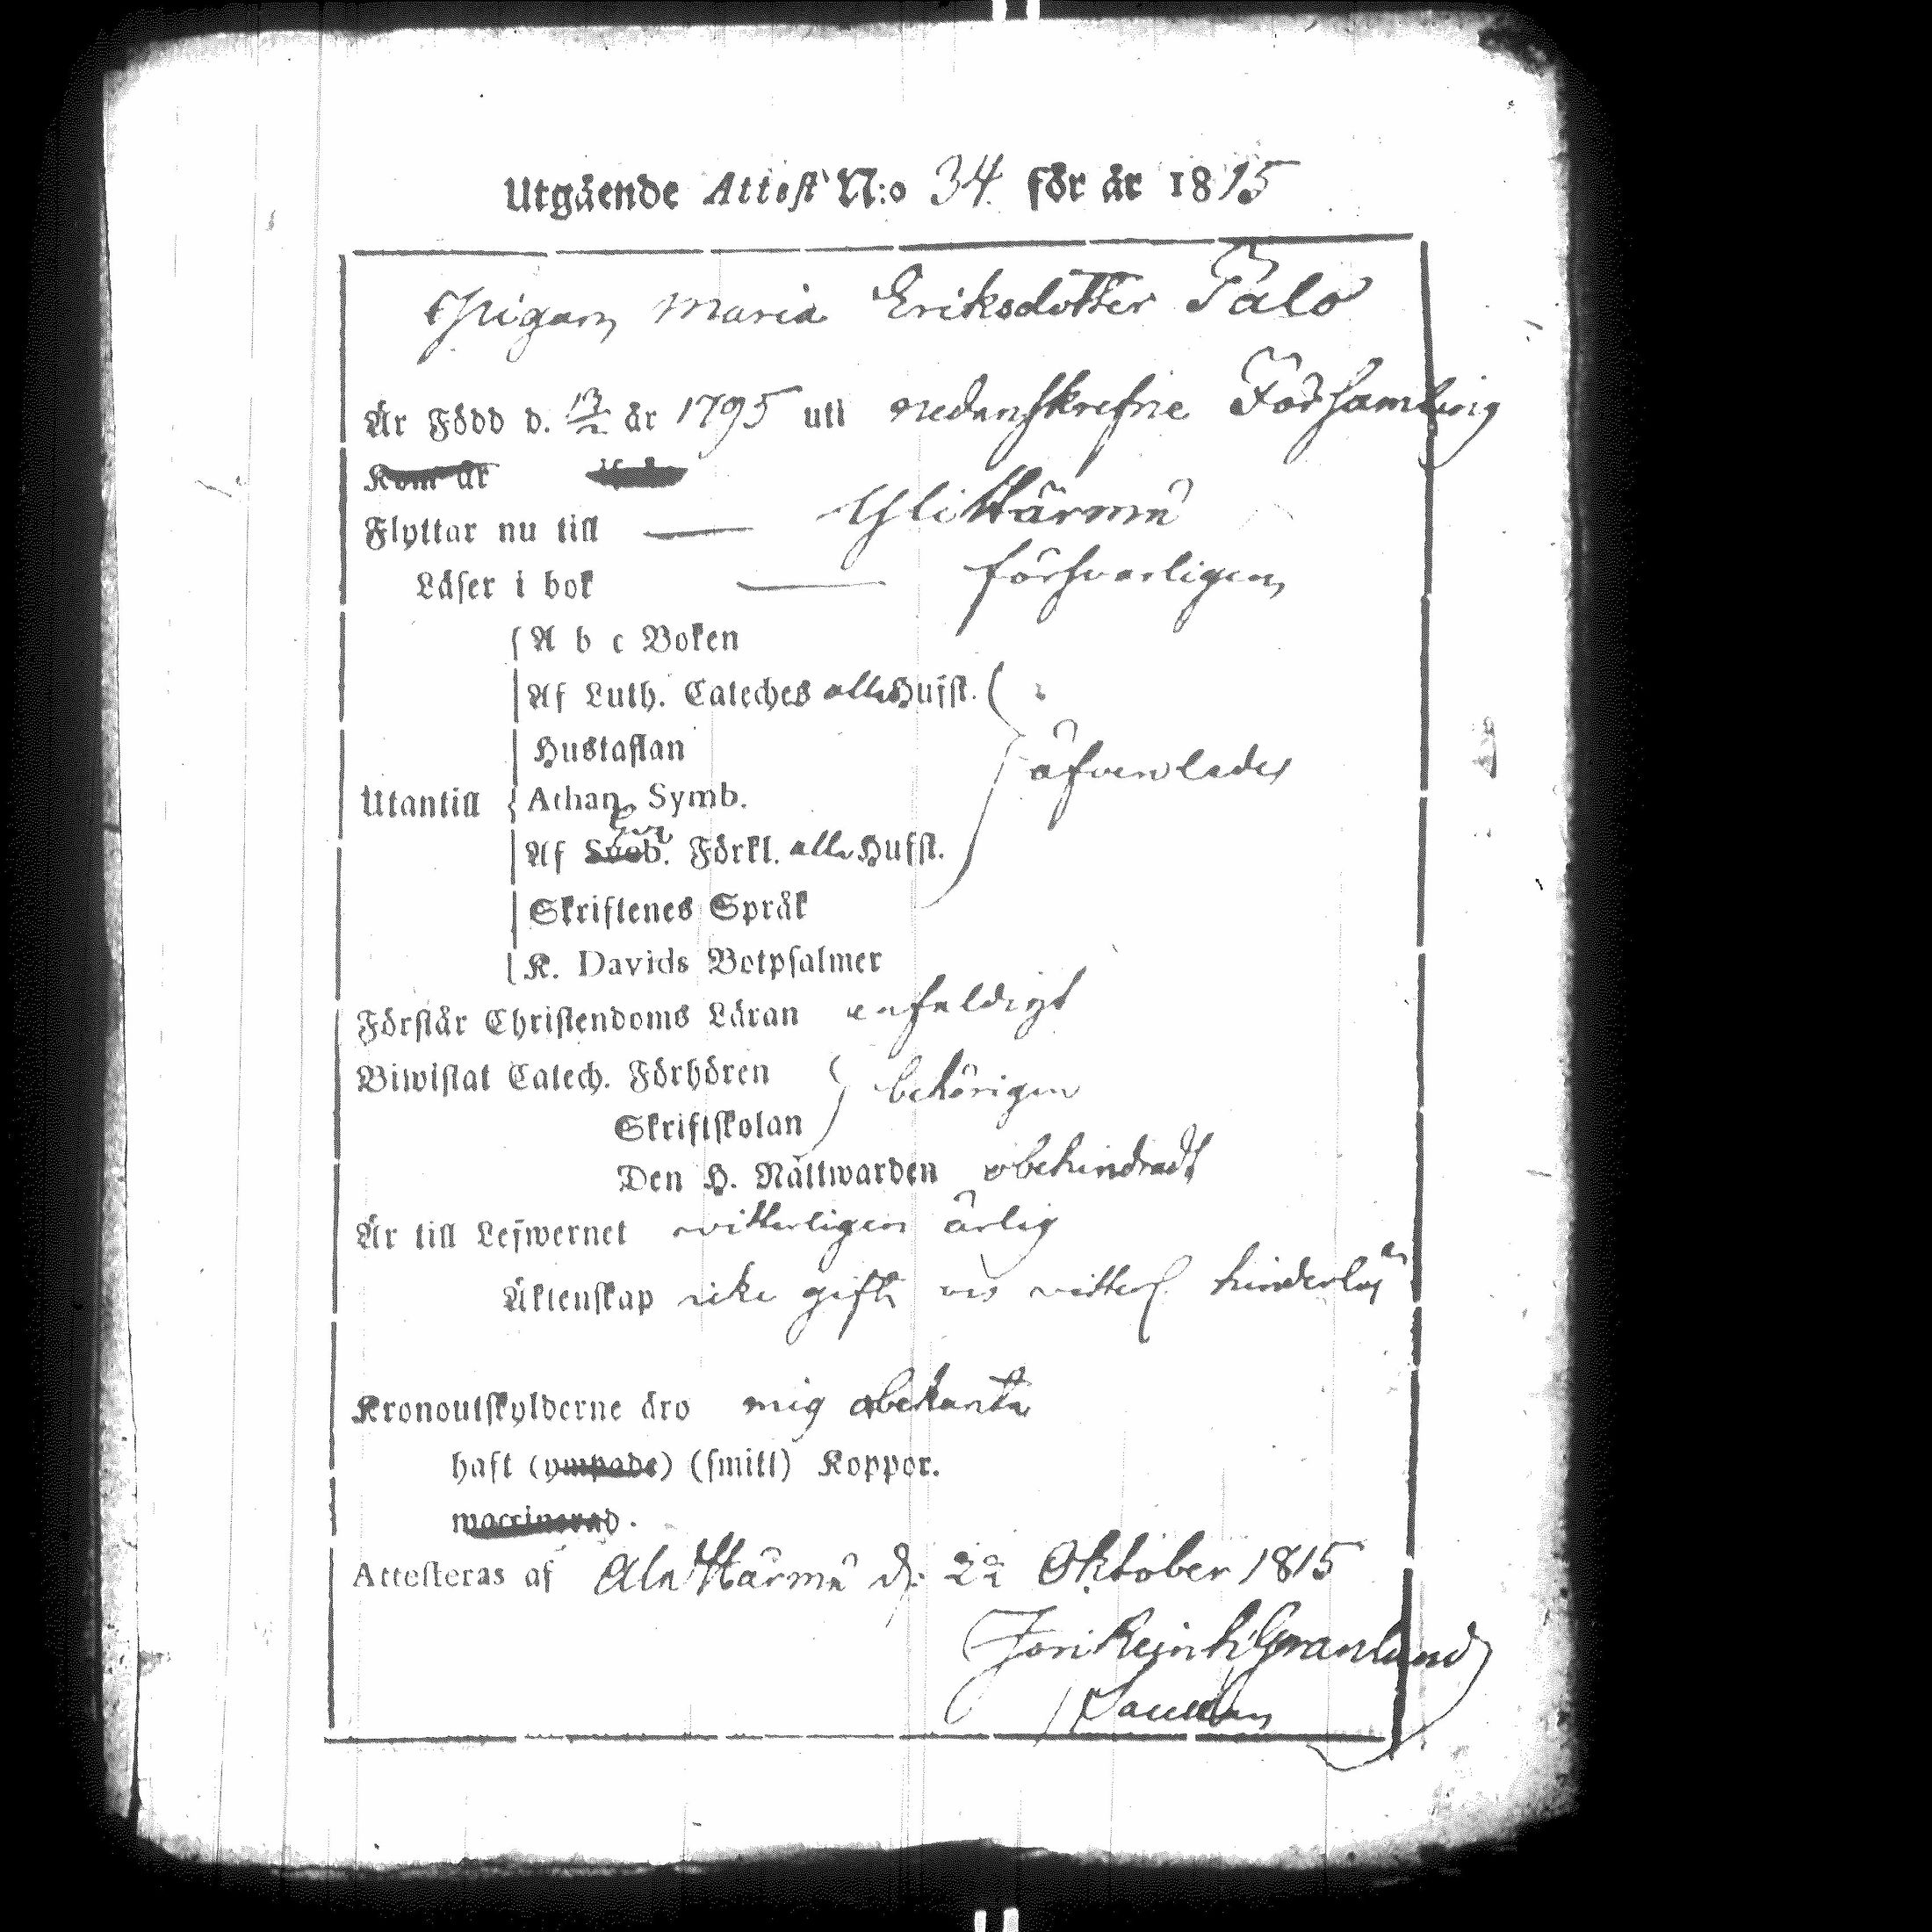 Utgående Attest N:o 34. för år 1815
Pigan Maria Eriksdotter Talo
Är Född d. 13/2 år 1795 uti nedanskrefne Församling
Kom år ifrån
Flyttar nu till — Ylihärmä
Läser i bok — försvarligen
A b c Boken
Af Luth. Cateches alla Hufst.
Hustaflan
äfvenledes
Utantill Athan. Symb.
Af Sveb. Förkl. alla Hufst.
Skriftenes Språk
K. Davids Botpsalmer
Förstår Christendoms Läran enfaldigt
Biwistat Catech. Förhören
behörigen
Skriftskolan
Den H. Nattwarden obehindradt
Är till Lefwernet witterligen ärlig
Äktenskap icke gift witterl. hinderlös
Kronoutskylderne äro mig obekanta
haft (ympade) (smitt) Koppor.
waccinerad.
Attesteras af Alahärmä d. 22 Oktober 1815
Granlund